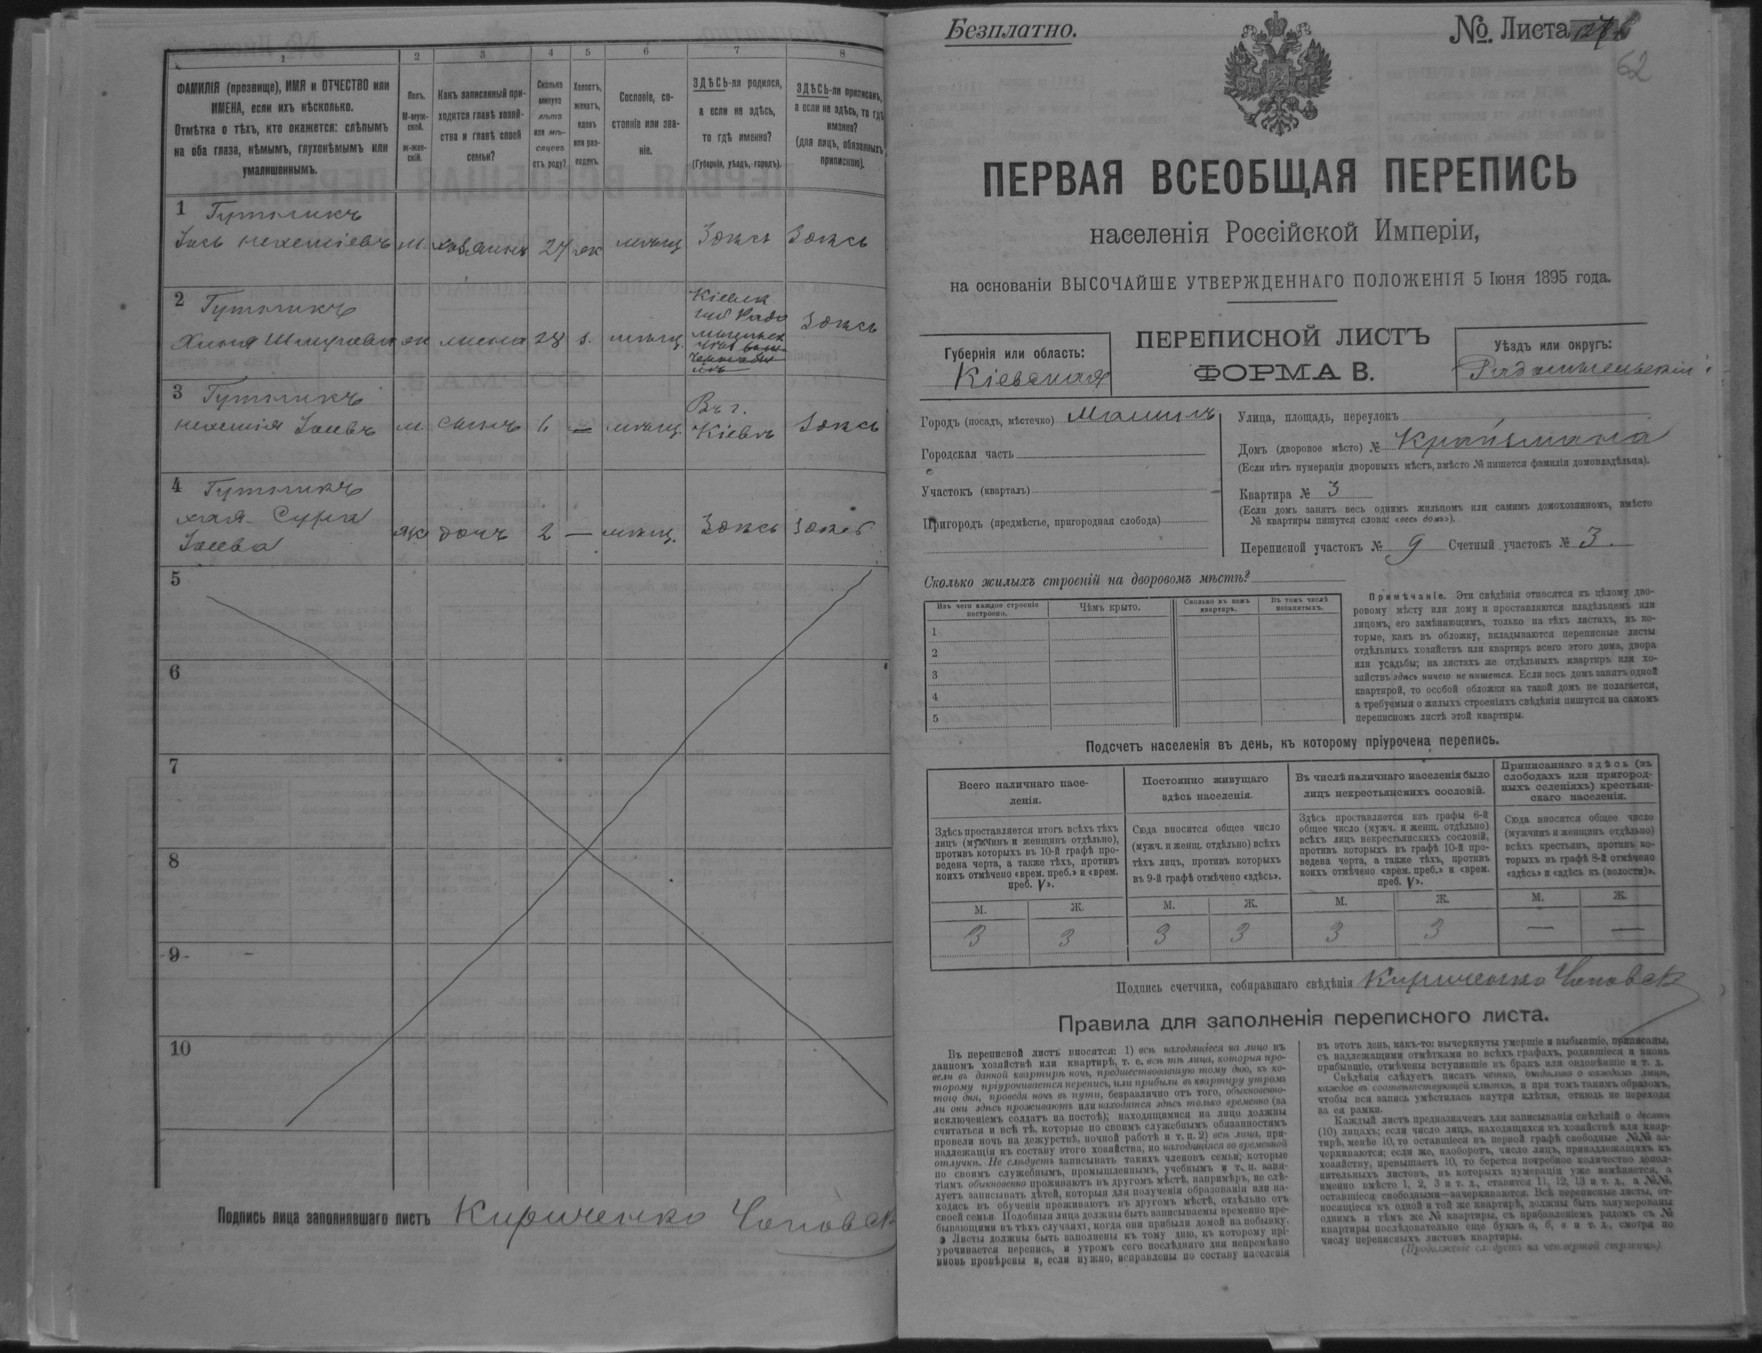 1
ФАМИЛІЯ (прозвище), ИМЯ и ОТЧЕСТВО или
ИМЕНА, если ихъ нѣсколько.
Отмѣтка о тѣхъ, кто окажется: слѣпымъ
на оба глаза, нѣмымъ, глухонѣмымъ или
умалишеннымъ.
2
Полъ.
М-муж-
ской.
ж-жен-
скій.
3
Какъ записанный при-
ходится главѣ хозяй-
ства и главѣ своей
семьи?
4
Сколько
минуло
лѣтъ
или мѣ-
сяцевъ
отъ роду?
5
Холостъ,
женатъ,
вдовъ
или раз-
веденъ.
6
Сословіе, со-
стояніе или зва-
ніе.
7
ЗДѢСЬ-ли родился,
а если не здѣсь,
то гдѣ именно?
(Губернія, уѣздъ, городъ).
8
ЗДѢСЬ-ли приписанъ,
а если не здѣсь, то гдѣ
именно?
(для лицъ, обязанныхъ
припискою).
1
м.
27
Здѣсь
Здѣсь
2
жена
28
Здѣсь
3
м.
сынъ
6
—
Въ г.
Кіевѣ
Здѣсь
4
дочь
2
—
Здѣсь
Здѣсь
5
6
7
8
9
10
Подпись лица заполнявшаго листъ Кириченко
Безплатно.
№ Листа
62
ПЕРВАЯ ВСЕОБЩАЯ ПЕРЕПИСЬ
населенія Россійской Имперіи,
на основаніи ВЫСОЧАЙШЕ УТВЕРЖДЕННАГО ПОЛОЖЕНІЯ 5 Іюня 1895 года.
Губернія или область:
Кіевская
ПЕРЕПИСНОЙ ЛИСТЪ
ФОРМА В.
Уѣздъ или округъ:
Радомысльскій
Городъ (посадъ, мѣстечко)
Городская часть
Участокъ (кварталъ)
Пригородъ (предмѣстье, пригородная слобода)
Улица, площадь, переулокъ
Домъ (дворовое мѣсто) №
(Если нѣтъ нумераціи дворовыхъ мѣстъ, вмѣсто № пишется фамилія домовладѣльца).
Квартира № 3
(Если домъ занятъ весь однимъ жильцомъ или самимъ домохозяиномъ, вмѣсто
№ квартиры пишутся слова: «весь домъ»).
Переписной участокъ № 9 Счетный участокъ № 3.
Сколько жилыхъ строеній на дворовомъ мѣстѣ?
Изъ чего каждое строеніе
построено.
Чѣмъ крыто.
Сколько въ немъ
квартиръ.
Въ томъ числѣ
незанятыхъ.
1
2
3
4
5
Примѣчаніе. Эти свѣдѣнія относятся къ цѣлому дво-
ровому мѣсту или дому и проставляются владѣльцемъ или
лицомъ, его замѣняющимъ, только на тѣхъ листахъ, въ ко-
торые, какъ въ обложку, вкладываются переписные листы
отдѣльныхъ хозяйствъ или квартиръ всего этого дома, двора
или усадьбы; на листахъ же отдѣльныхъ квартиръ или хо-
зяйствъ здѣсь ничего не пишется. Если весь домъ занятъ одной
квартирой, то особой обложки на такой домъ не полагается,
а требуемыя о жилыхъ строеніяхъ свѣдѣнія пишутся на самомъ
переписномъ листѣ этой квартиры.
Подсчетъ населенія въ день, къ которому пріурочена перепись.
Всего наличнаго насе-
ленія.
Здѣсь проставляется итогъ всѣхъ тѣхъ
лицъ (мужчинъ и женщинъ отдѣльно),
противъ которыхъ въ 10-й графѣ про-
ведена черта, а также тѣхъ, противъ
коихъ отмѣчено «врем. преб.» и «врем.
преб. V».
Постоянно живущаго
здѣсь населенія.
Сюда вносится общее число
(мужч. и женщ. отдѣльно) всѣхъ
тѣхъ лицъ, противъ которыхъ
въ 9-й графѣ отмѣчено «здѣсь».
Въ числѣ наличнаго населенія было
лицъ некрестьянскихъ сословій.
Здѣсь проставляется изъ графы 6-й
общее число (мужч. и женщ. отдѣльно)
всѣхъ лицъ некрестьянскихъ сословій,
противъ которыхъ въ графѣ 10-й про-
ведена черта, а также тѣхъ, противъ
коихъ отмѣчено «врем. преб.» и «врем.
преб. V».
Приписаннаго здѣсь (въ
слободахъ или пригород-
ныхъ селеніяхъ) крестьян-
скаго населенія.
Сюда вносится общее число
(мужчинъ и женщинъ отдѣльно)
всѣхъ крестьянъ, противъ ко-
торыхъ въ графѣ 8-й отмѣчено
«здѣсь» и «здѣсь къ (волости)».
М. Ж. М. Ж. М. Ж. М. Ж.
3 3 3 3 3 3 — —
Подпись счетчика, собиравшаго свѣдѣнія Кириченко
Правила для заполненія переписного листа.
Въ переписной листъ вносятся: 1) всѣ находящіеся на лицо въ
данномъ хозяйствѣ или квартирѣ, т. е. всѣ тѣ лица, которыя про-
вели въ данной квартирѣ ночь, предшествовавшую тому дню, къ ко-
торому пріурочивается перепись, или прибыли въ квартиру утромъ
того дня, проведя ночь въ пути, безразлично отъ того, обыкновенно-
ли они здѣсь проживаютъ или находятся здѣсь только временно (за
исключеніемъ солдатъ на постоѣ); находящимися на лицо должны
считаться и всѣ тѣ, которые по своимъ служебнымъ обязанностямъ
провели ночь на дежурствѣ, ночной работѣ и т. п. 2) всѣ лица, при-
надлежащія къ составу этого хозяйства, но находящіяся во временной
отлучкѣ. Не слѣдуетъ записывать такихъ членовъ семьи, которые
по своимъ служебнымъ, промышленнымъ, учебнымъ и т. п. заня-
тіямъ обыкновенно проживаютъ въ другомъ мѣстѣ, напримѣръ, не слѣ-
дуетъ записывать дѣтей, которыя для полученія образованія или на-
ходясь въ обученіи проживаютъ въ другомъ мѣстѣ, отдѣльно отъ
своей семьи. Подобныя лица должны быть записываемы временно пре-
бывающими въ тѣхъ случаяхъ, когда они прибыли домой на побывку.
Листы должны быть заполнены къ тому дню, къ которому прі-
урочивается перепись, и утромъ сего послѣдняго дня непремѣнно
вновь провѣрены и, если нужно, исправлены по составу населенія
въ этотъ день, какъ-то: вычеркнуты умершіе и выбывшіе, приписаны,
съ надлежащими отмѣтками во всѣхъ графахъ, родившіеся и вновь
прибывшіе, отмѣчены вступившіе въ бракъ или овдовѣвшіе и т. д.
Свѣдѣнія слѣдуетъ писать четко, отдѣльно о каждомъ лицѣ,
каждое въ соотвѣтствующей клѣткѣ, и при томъ такимъ образомъ,
чтобы вся запись умѣстилась внутри клѣтки, отнюдь не переходя
за ея рамки.
Каждый листъ предназначенъ для записыванія свѣдѣній о десяти
(10) лицахъ; если число лицъ, находящихся въ хозяйствѣ или квар-
тирѣ, менѣе 10, то оставшіеся въ первой графѣ свободные №№ за-
черкиваются; если же, наоборотъ, число лицъ, принадлежащихъ къ
хозяйству, превышаетъ 10, то берется потребное количество допол-
нительныхъ листовъ, въ которыхъ нумерація уже измѣняется, а
именно вмѣсто 1, 2, 3 и т. д., ставится 11, 12, 13 и т. д., а №№,
оставшіеся свободными—зачеркиваются. Всѣ переписные листы, от-
носящіеся къ одной и той же квартирѣ, должны быть занумерованы
однимъ и тѣмъ же № квартиры, съ прибавленіемъ рядомъ съ №
квартиры послѣдовательно еще буквъ а, б, в и т. д., смотря по
числу переписныхъ листовъ квартиры.
(Продолженіе слѣдуетъ на четвертой страницѣ)